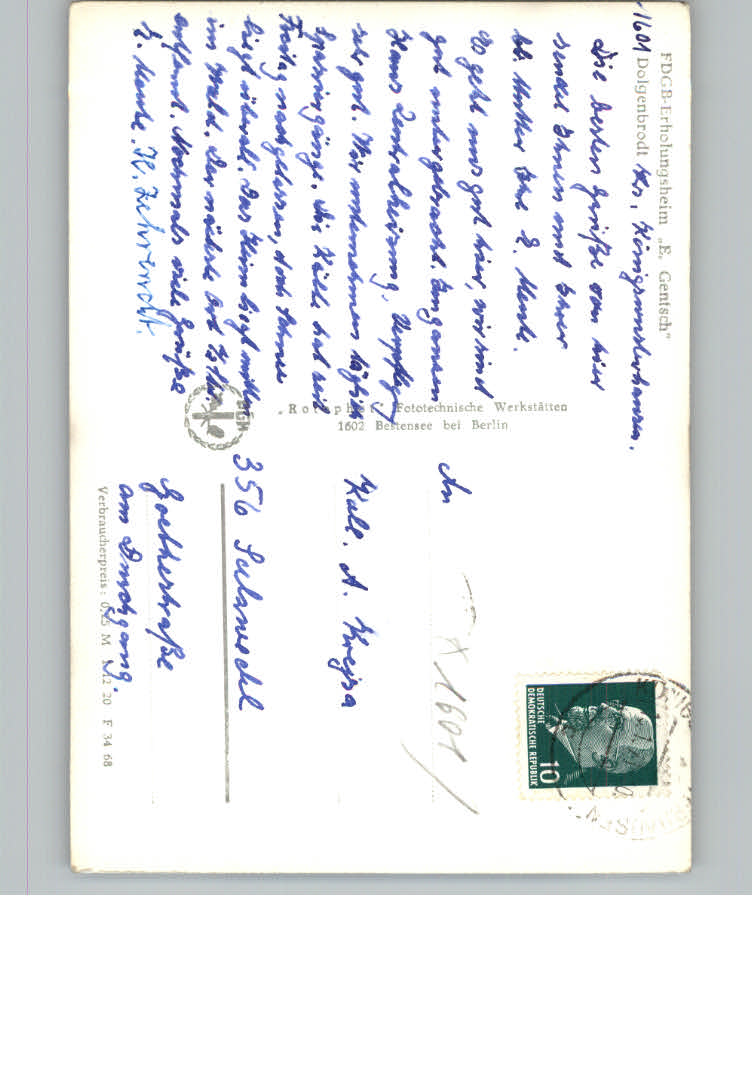 FDGB-Erholungsheim „E. Gentsch"
1601 Dolgenbrodt Krs. Königswusterhausen.
Die besten Grüße von hier
sendet Ihnen und Ihrer
lb. Mutter Ihre E. Menke.
Es geht uns gut hier, wir sind
gut untergebracht. Im ganzen
Haus Zentralheizung, Verpflegung
sehr gut. Wir unternehmen täglich
Spaziergänge. Die Kälte hat seit
Freitag nachgelassen, doch Schnee
liegt überall. Das Heim liegt mitten
im Wald. Der nächste Ort ist
entfernt. Nochmals viele Grüße
E. Menke.
DGM
„Rotophot" Fototechnische Werkstätten
1602 Bestensee bei Berlin
An
Koll. A. Krejsa
356 Salzwedel
Goethestraße
am Durchgang.
Verbraucherpreis: 0,25 M
F 34 68
X 1601
DEUTSCHE
DEMOKRATISCHE REPUBLIK
10